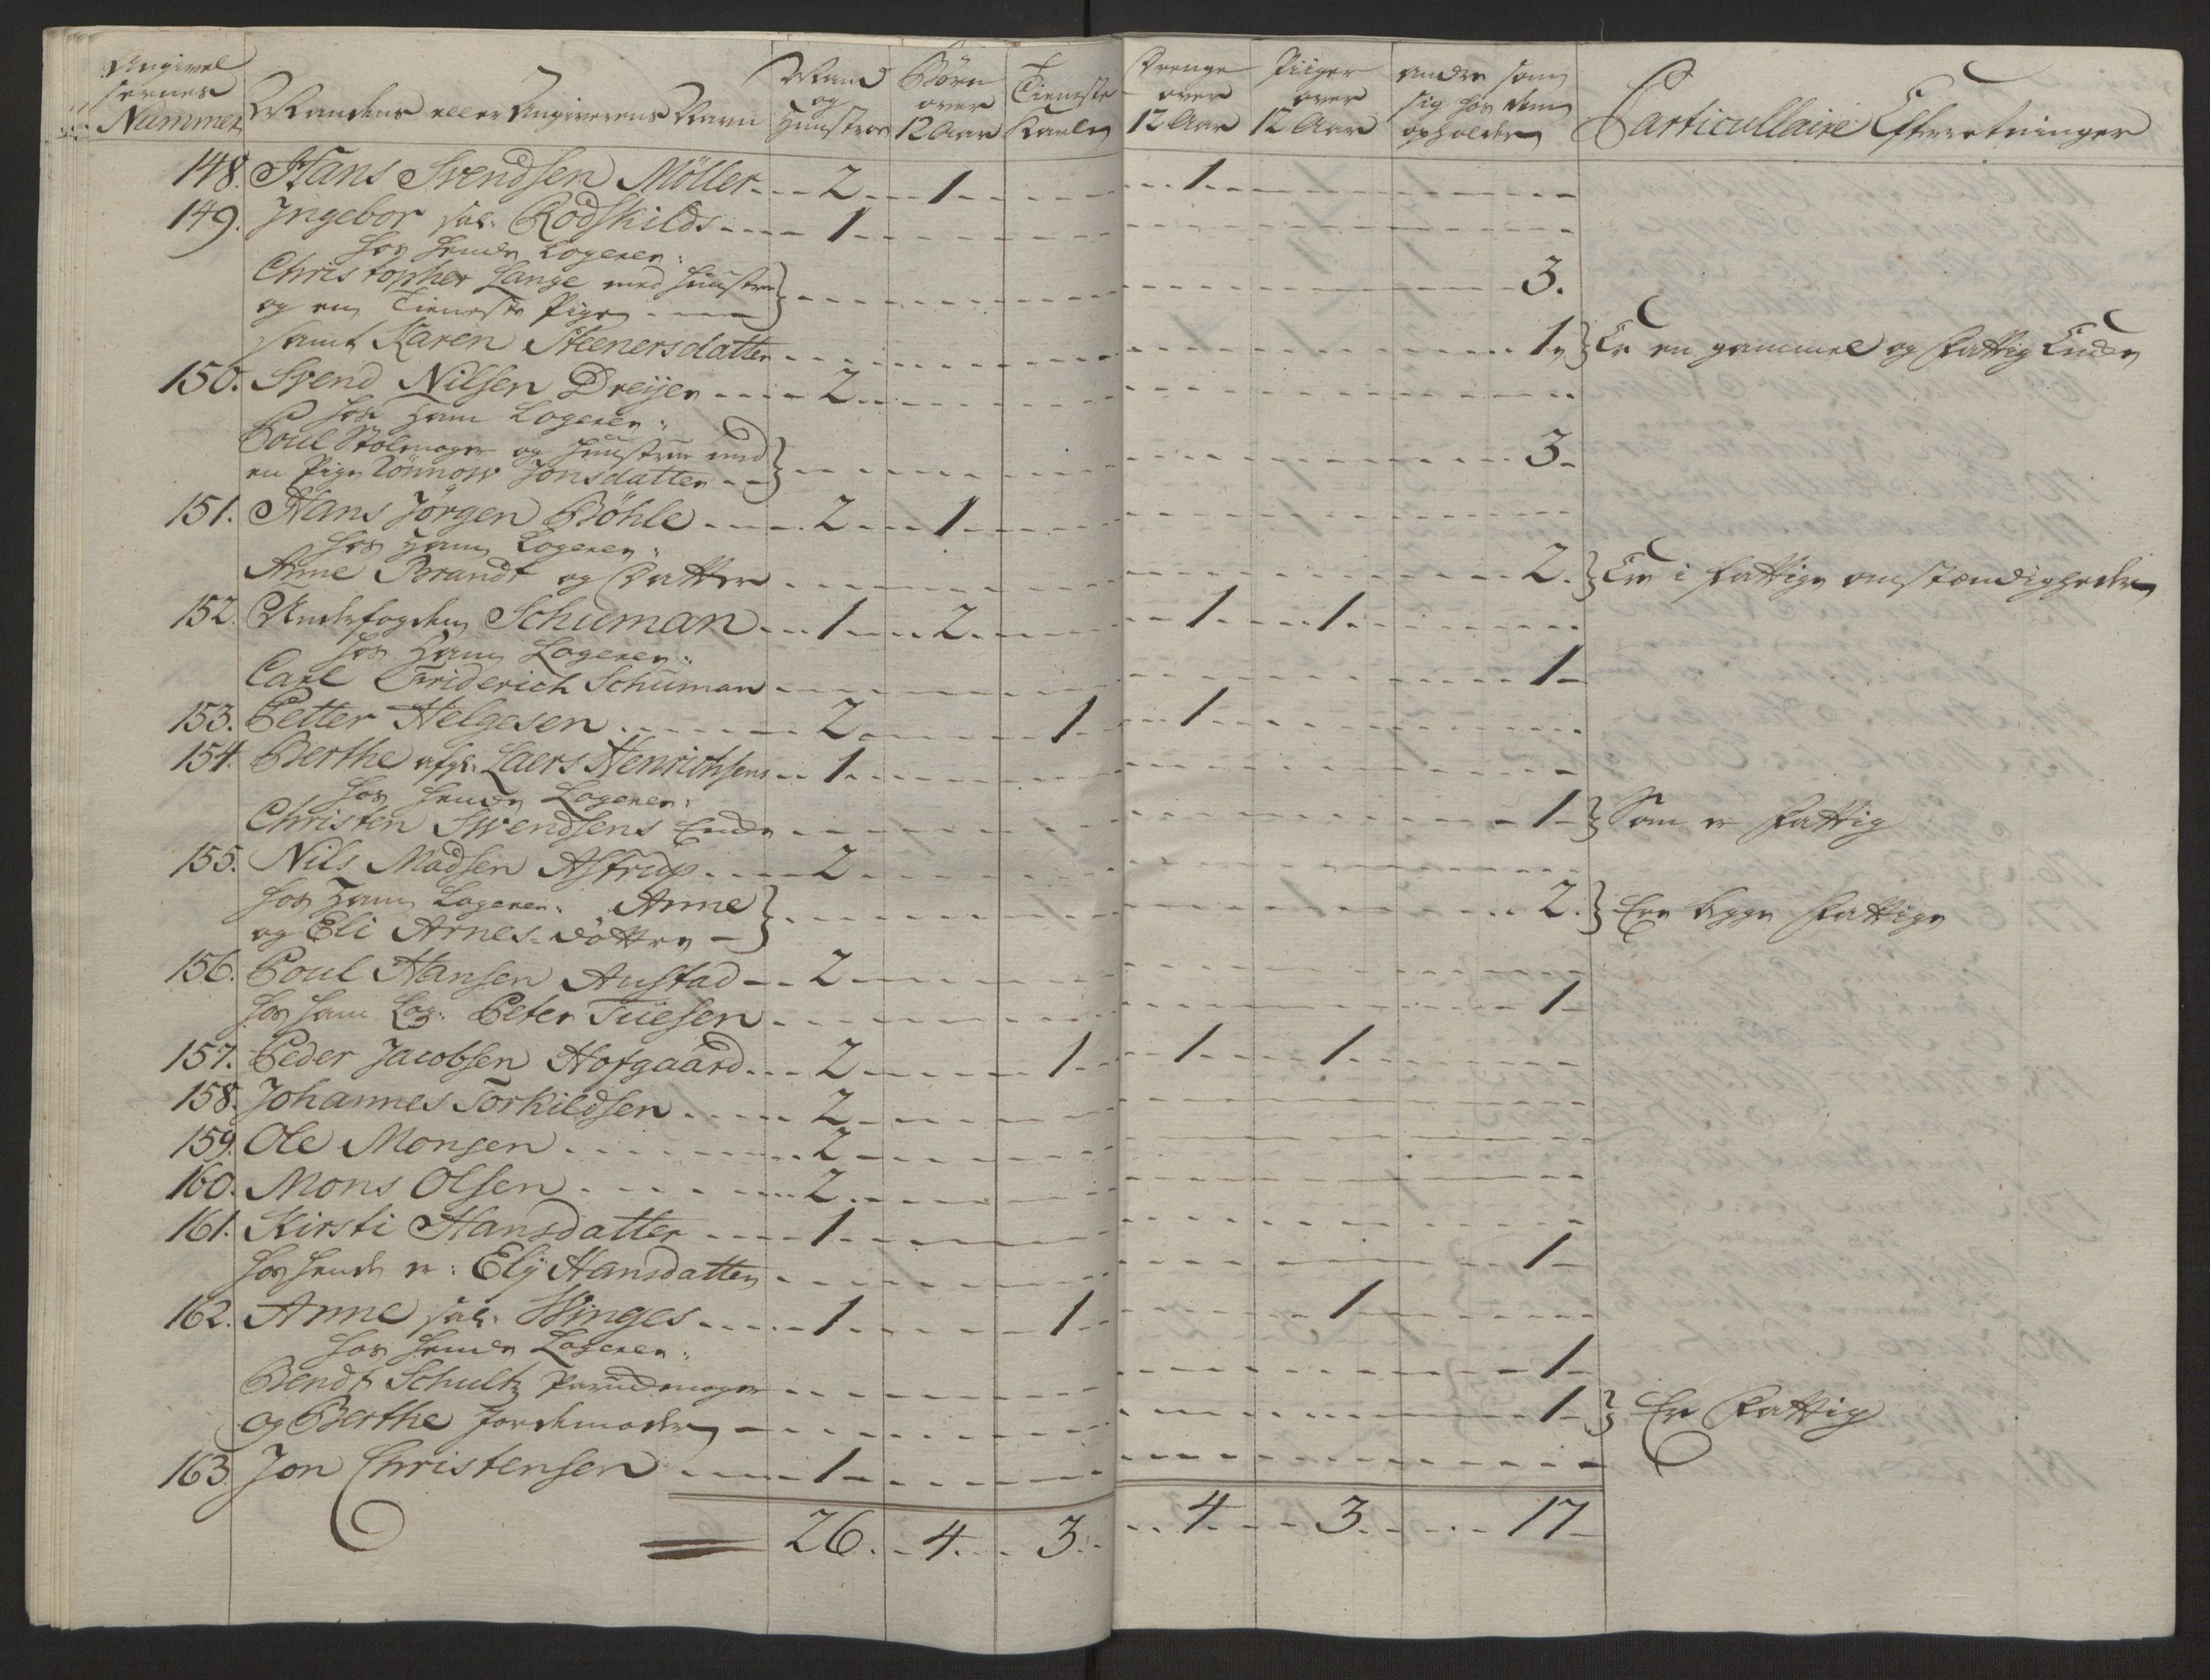 Angivel sernes Nummer | Mandens eller Angiverens Navn | Mand og Hustroe | Börn over 12 Aar | Tieneste Karle | Drenge over 12 Aar | Piiger over 12 Aar | andre som sig hos dem opholder | Particullaire Efterretninger
148. Hans Svendsen Möller 2 1 1
149. Ingebor sal: Rodskilds 1
hos hende Logerer:
Christopher Lange med Huustroe
og en Tieneste Pige 3.
samt Karen Steenersdatter 1 Er en gammel og fattig Encke
150. Svend Nilsen Dreyer 2
hos ham Logerer:
Poul Stolmager og Huustrue med
en Pige Rönnow Jonsdatter 3
151. Hans Jörgen Böhle 2 1
hos ham Logerer:
Anne Brandt og Datter 2. Ere i fattige omstændigheder
152. Underfogden Schuman 1 2 1 1
hos ham Logerer:
Carl Friderich Schuman 1
153. Petter Helgesen 2 1 1
154. Berthe afg: Laers Henrichsens 1
hos hende Logerer:
Christen Svendsens Encke 1 Som er fattig
155. Nils Madsen Astrup 2
hos ham Logerer: Anne
og Eli Arnes-döttre 2. Ere begge fattige
156. Poul Hansen Austad 2
hos ham Log: Peter Tüesen 1
157. Peder Jacobsen Hofgaard 2 1 1 1
158. Johannes Torkildsen 2
159. Ole Monsen 2
160. Mons Olsen 2
161. Kirsti Hansdatter 1
hos hende er: Ely Hansdatter 1
162. Anne sal: Winges 1 1 1
hos hende Logerer:
Bendt Schultz Parudemager 1
og Berthe Jordemoder 1 Er fattig
163. Jon Christensen 1
26. 4. 3. 4. 3. 17